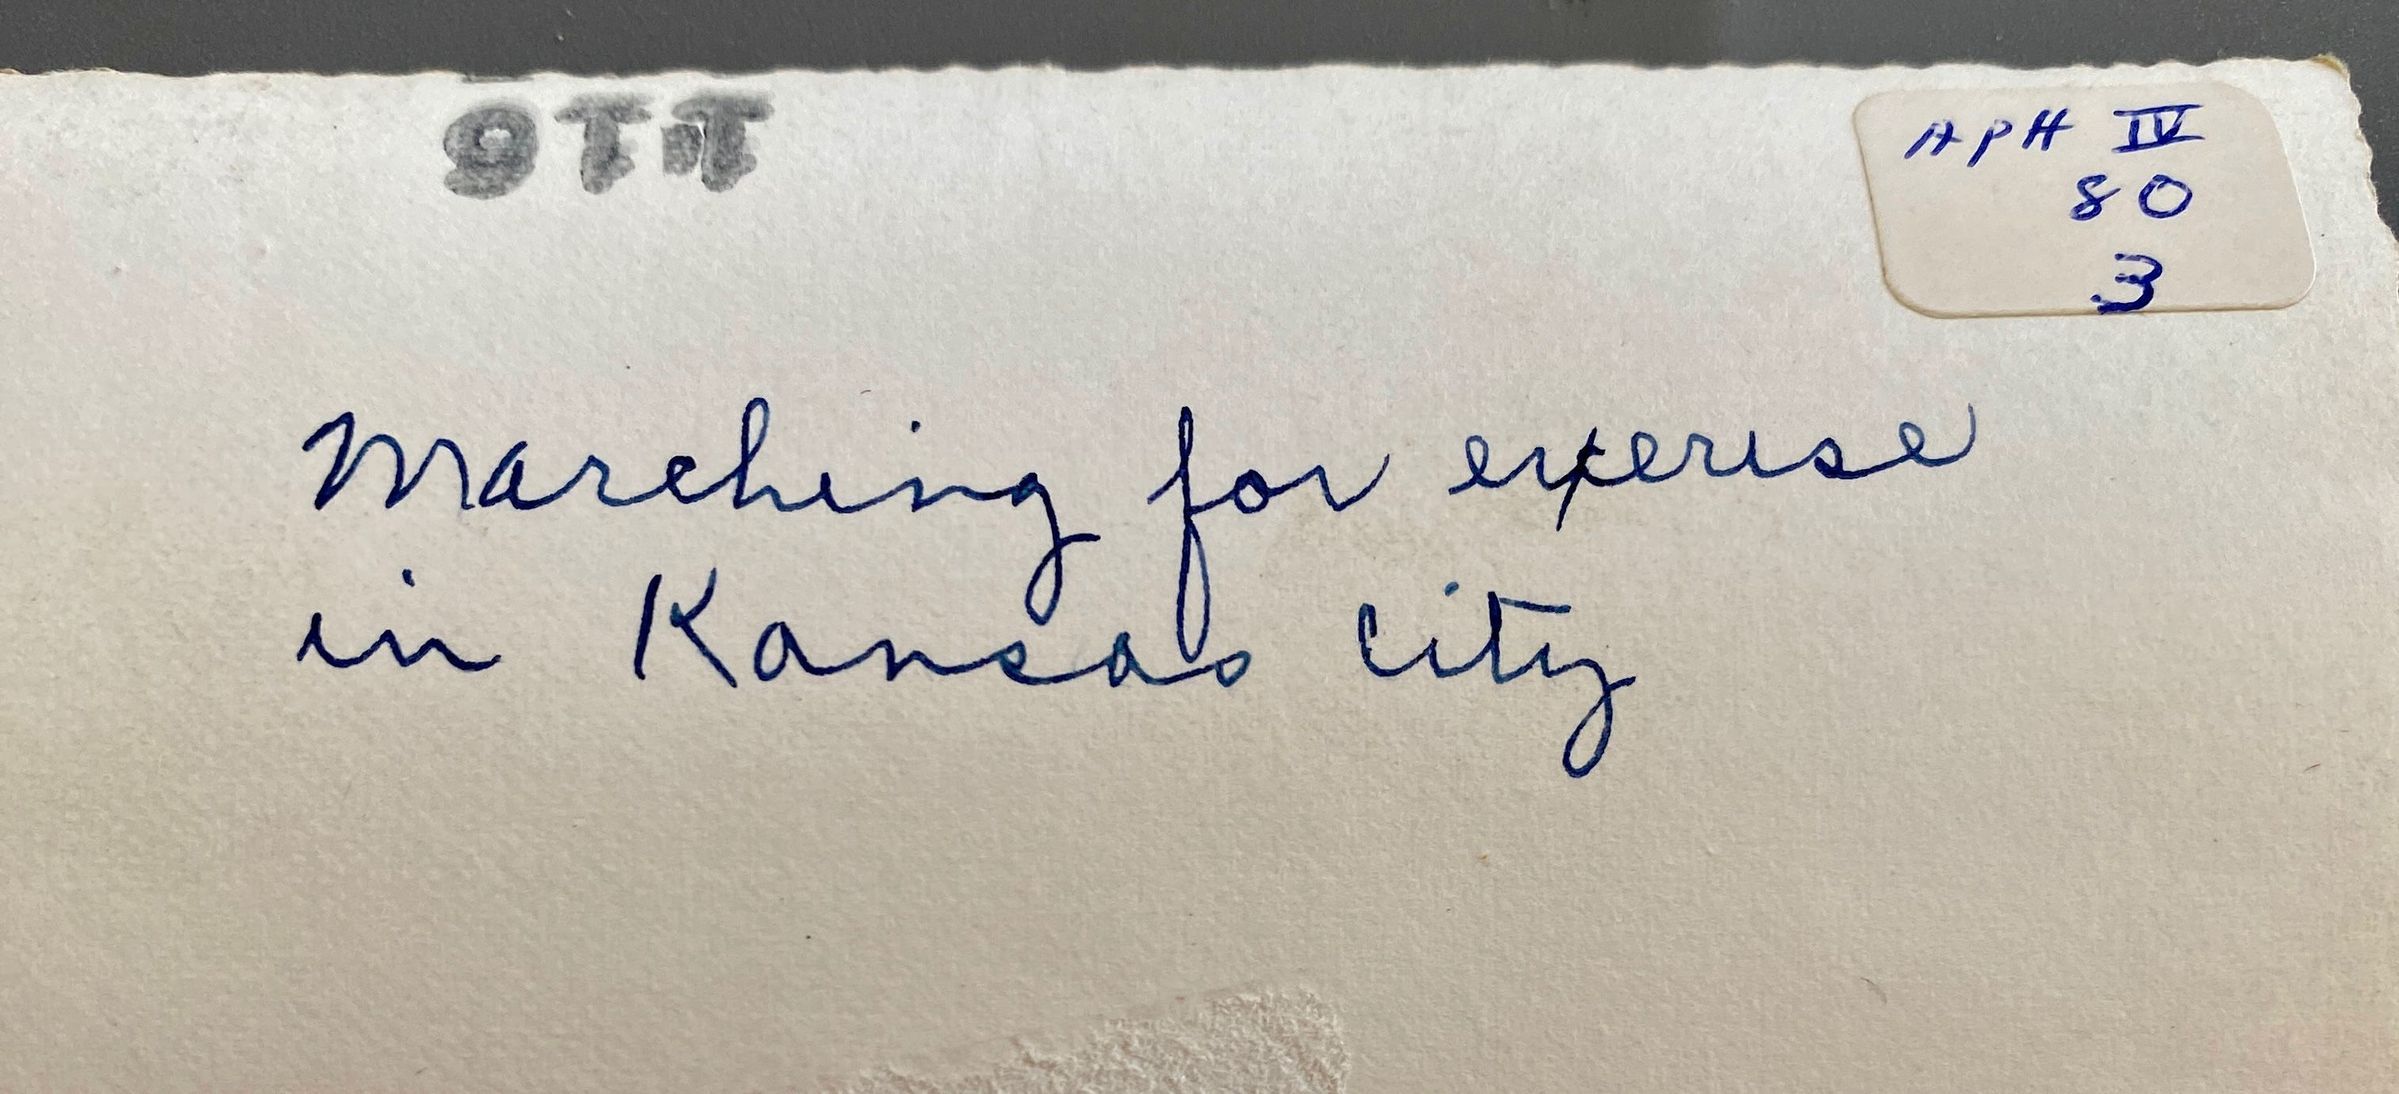 116
APH IV
80
3
Marching for exerise
in Kansas City